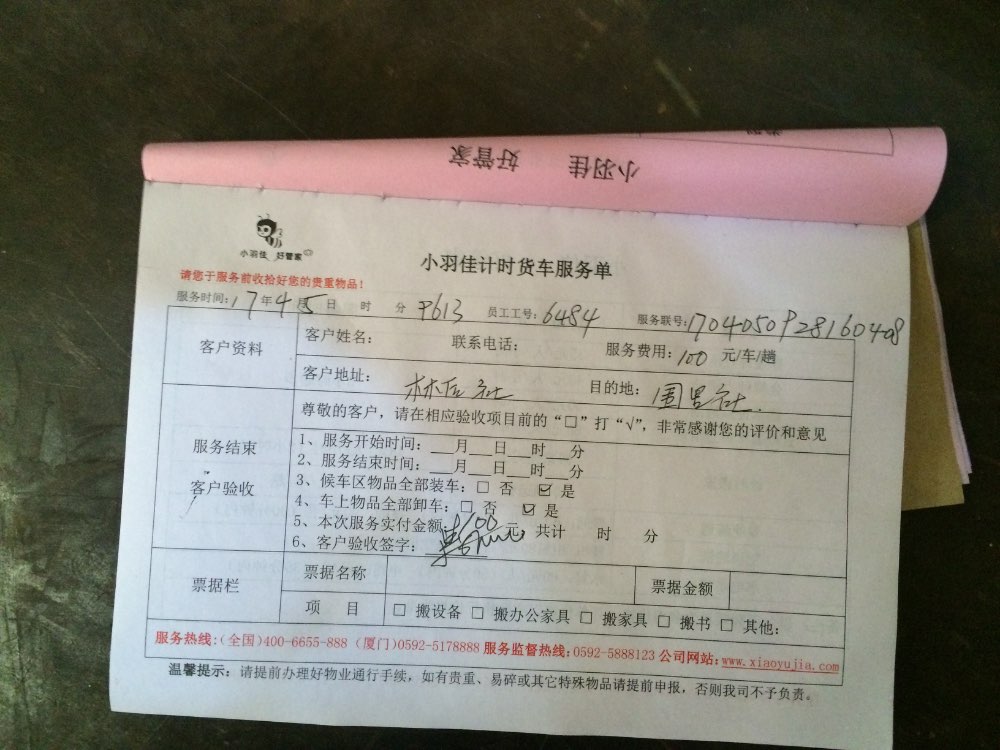 小羽佳 好管家
小羽佳 好管家
小羽佳计时货车服务单
请您于服务前收拾好您的贵重物品!
服务时间: 17年4月5日 时 分 P613 员工工号: 6484 服务联号: 1704050928160408
客户资料
客户姓名: 联系电话: 服务费用: 100 元/车/趟
客户地址: 林后社 目的地: 围里社.
服务结束
客户验收
尊敬的客户，请在相应验收项目前的“□”打“√”, 非常感谢您的评价和意见
1、服务开始时间: 月 日 时 分
2、服务结束时间: 月 日 时 分
3、候车区物品全部装车: □ 否 ☑ 是
4、车上物品全部卸车: □ 否 ☑ 是
5、本次服务实付金额: 100 元, 共计 时 分
6、客户验收签字:
票据栏
票据名称 票据金额
项 目 □ 搬设备 □ 搬办公家具 □ 搬家具 □ 搬书 □ 其他:
服务热线:(全国)400-6655-888 (厦门)0592-5178888 服务监督热线:0592-5888123 公司网站: www.xiaoyujia.com
温馨提示: 请提前办理好物业通行手续, 如有贵重、易碎或其它特殊物品请提前申报, 否则我司不予负责。